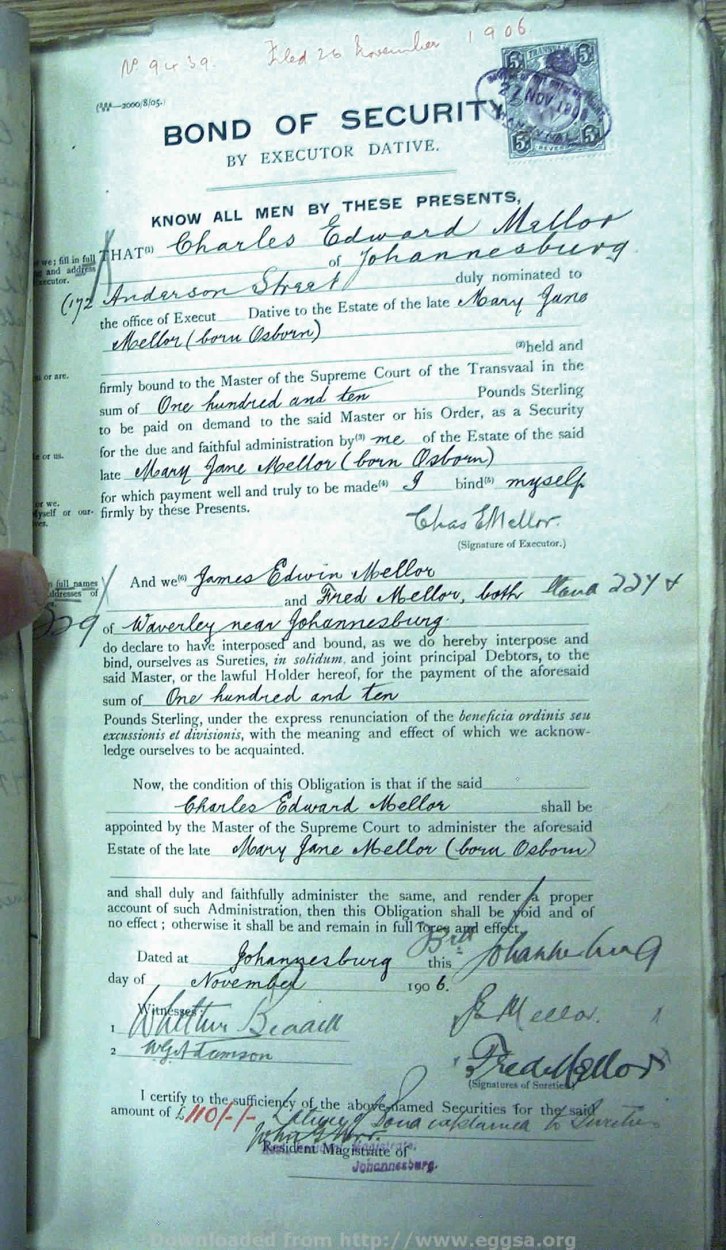 No 9439. Filed 26 November 1906
2000/8/05.)
5/ TRANSVAAL 5/
27 NOV. 19
5/ REVENUE 5/
BOND OF SECURITY
BY EXECUTOR DATIVE.
KNOW ALL MEN BY THESE PRESENTS,
we; fill in full
and address
xecutor.
THAT(1) Charles Edward Mellor
of Johannesburg
(172 Anderson Street duly nominated to
the office of Execut Dative to the Estate of the late Mary Jane
Mellor (born Osborn)
(2)held and
or are.
firmly bound to the Master of the Supreme Court of the Transvaal in the
sum of One hundred and ten Pounds Sterling
to be paid on demand to the said Master or his Order, as a Security
for the due and faithful administration by(3) me of the Estate of the said
e or us.
late Mary Jane Mellor (born Osborn)
for which payment well and truly to be made(4) I bind(5) myself
or we.
yself or our-
ves.
firmly by these Presents.
Chas E Mellor.
(Signature of Executor.)
full names
ddresses of
And we(6) James Edwin Mellor
and Fred Mellor, both 224 &
229 of Waverley near Johannesburg.
do declare to have interposed and bound, as we do hereby interpose and
bind, ourselves as Sureties, in solidum, and joint principal Debtors, to the
said Master, or the lawful Holder hereof, for the payment of the aforesaid
sum of One hundred and ten
Pounds Sterling, under the express renunciation of the beneficia ordinis seu
excussionis et divisionis, with the meaning and effect of which we acknow-
ledge ourselves to be acquainted.
Now, the condition of this Obligation is that if the said
Charles Edward Mellor shall be
appointed by the Master of the Supreme Court to administer the aforesaid
Estate of the late Mary Jane Mellor (born Osborn)
and shall duly and faithfully administer the same, and render a proper
account of such Administration, then this Obligation shall be void and of
no effect; otherwise it shall be and remain in full force and effect.
Dated at Johannesburg this Johannesburg
day of November 1906.
Witnesses:
1
J E Mellor. 1
2 W.G. Adamson
Fred Mellor
(Signatures of Sureties)
I certify to the sufficiency of the above-named Securities for the said
amount of £110/-/- Nature of Bond explained to Sureties
Resident Magistrate of
Johannesburg.
Downloaded from http://www.eggsa.org